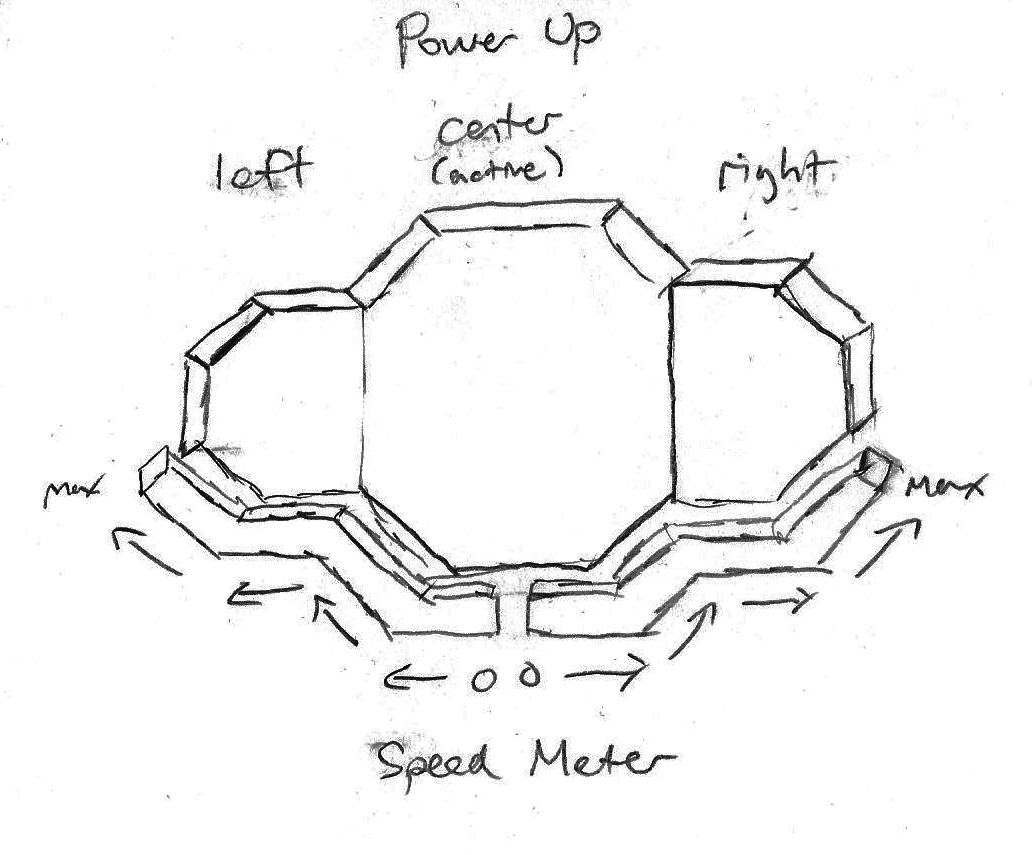 Power Up
center
(active)
left
right
Max
Max
0 0
Speed Meter